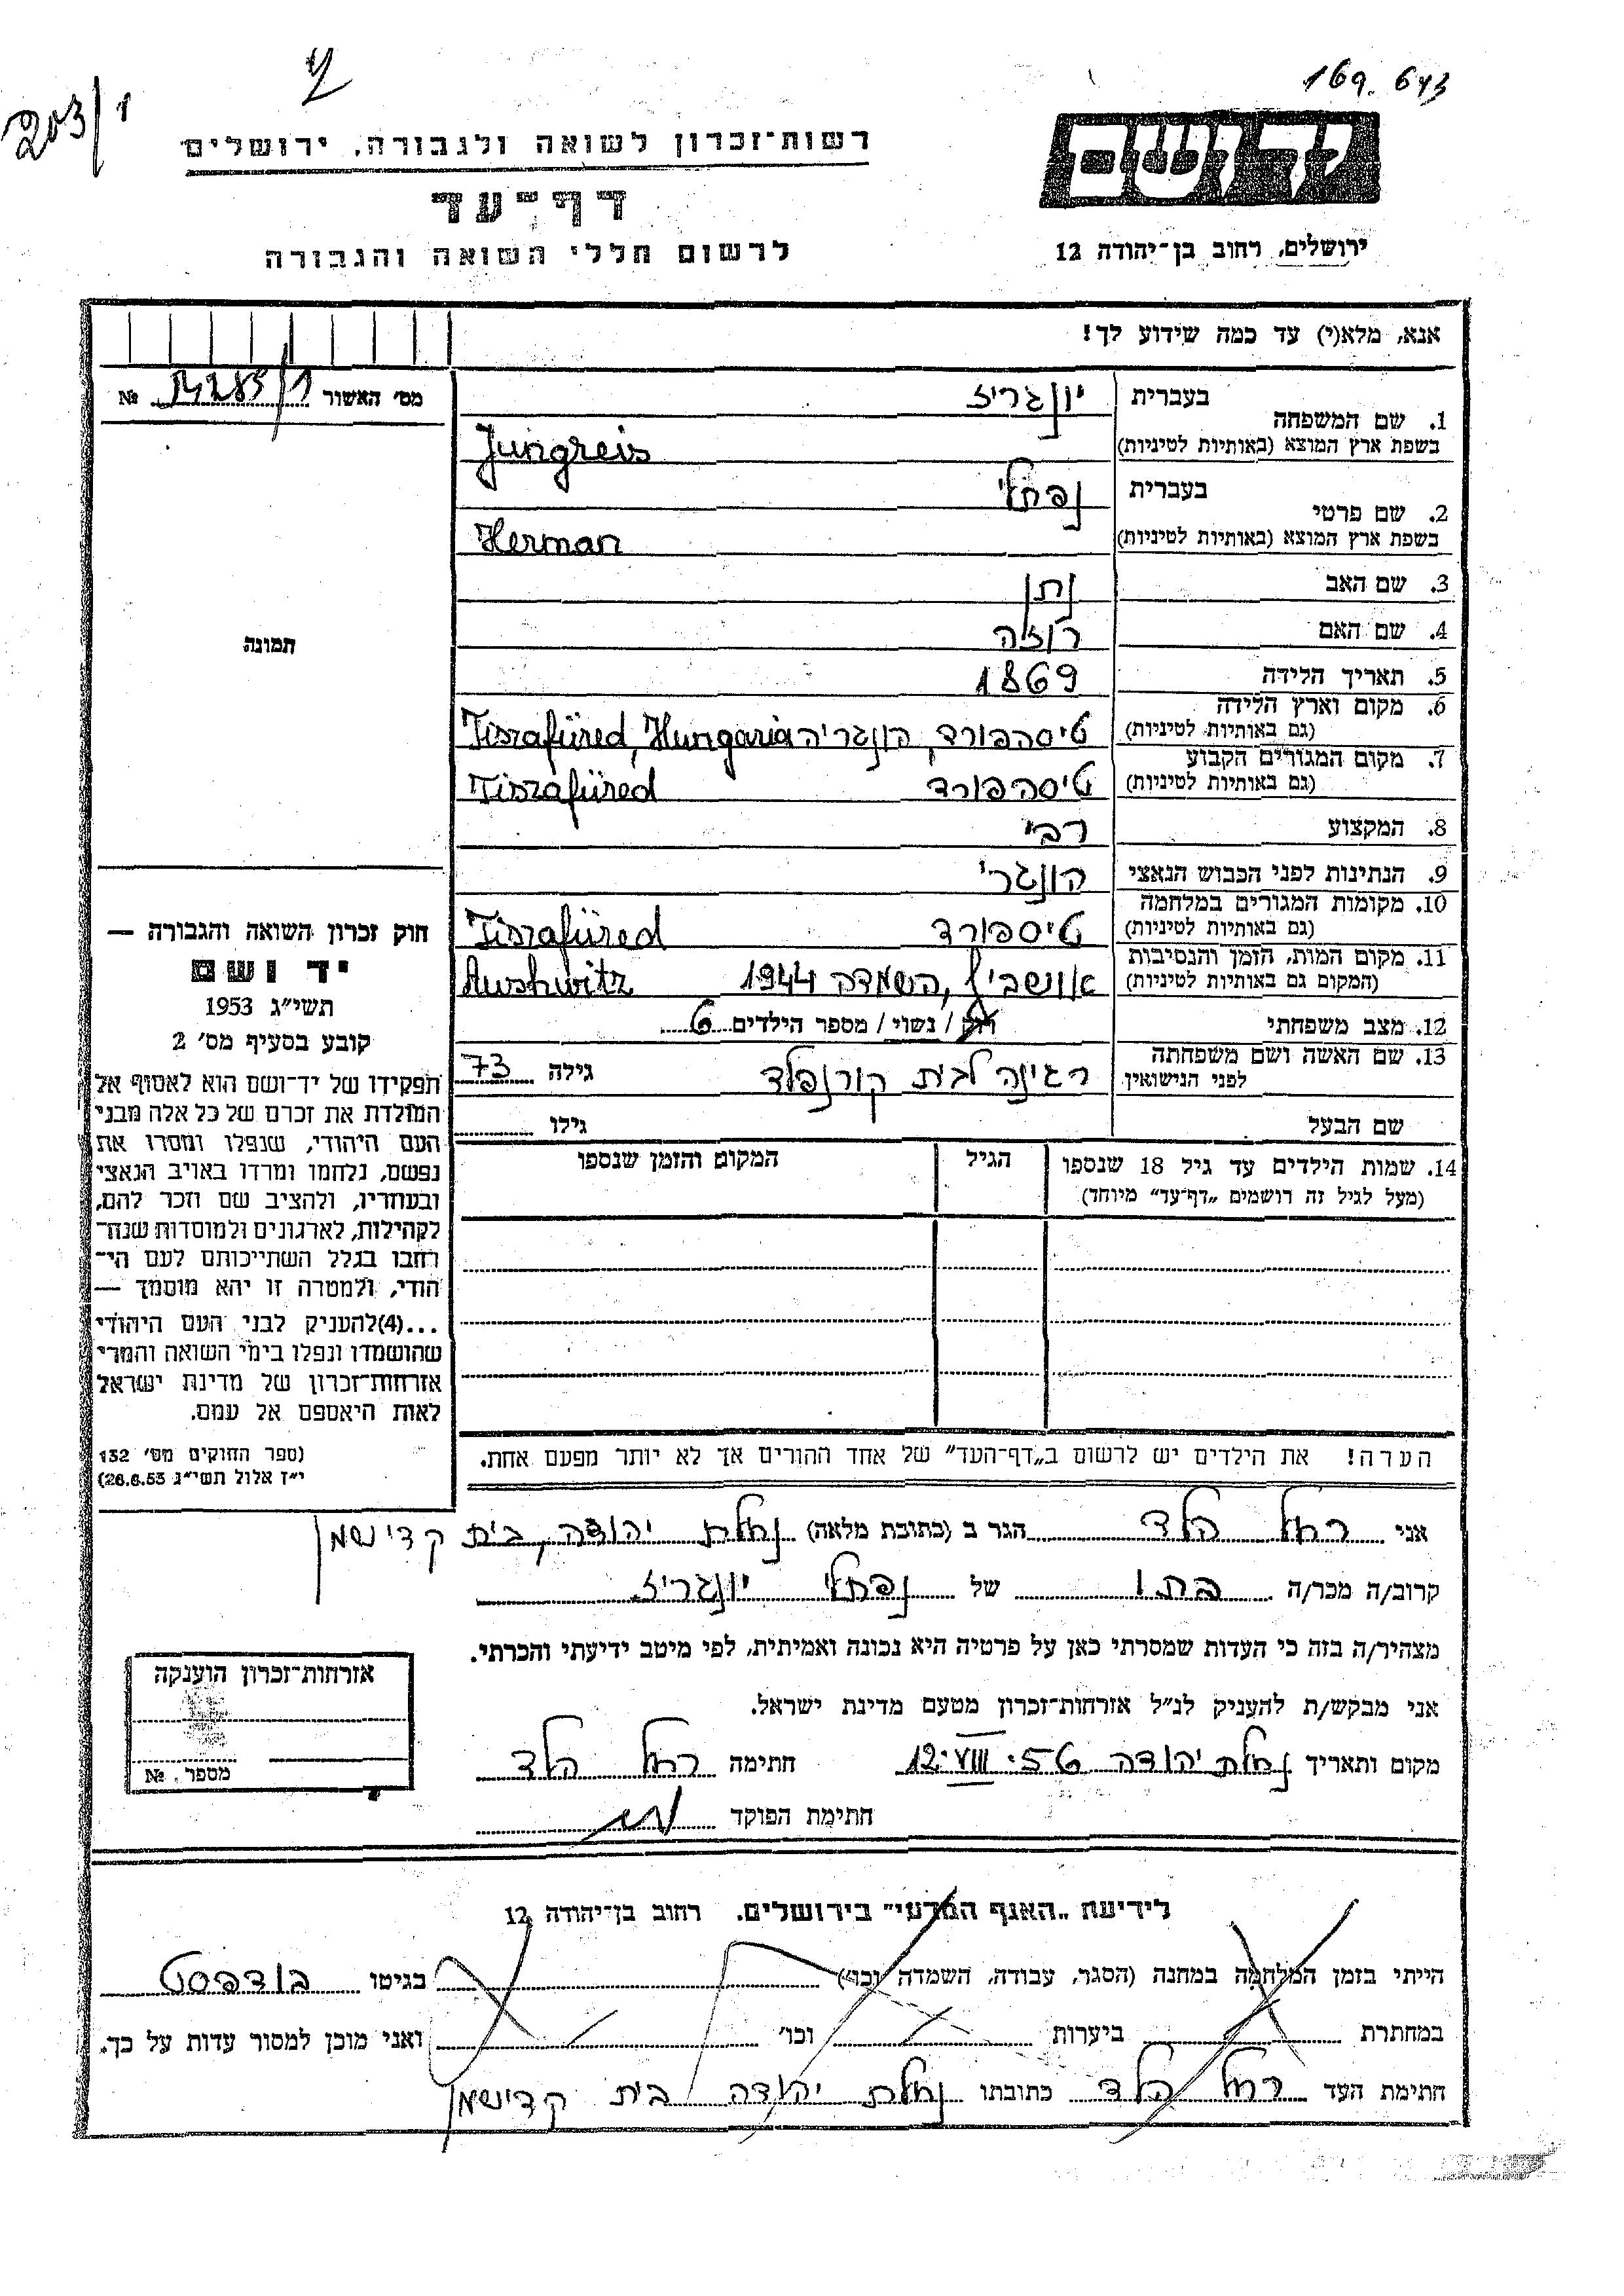 169.643
203/1
יד ושם
ירושלים, רחוב בן־יהודה 12
רשות־זכרון לשואה ולגבורה, ירושלים
דף־עד
לרשום חללי השואה והגבורה
אנא, מלא(י) עד כמה שידוע לך!
מס' האשור № 14285/1
תמונה
1. שם המשפחה
בעברית יונגריז
בשפת ארץ המוצא (באותיות לטיניות) Jungreis
2. שם פרטי
בעברית נפתלי
בשפת ארץ המוצא (באותיות לטיניות) Herman
3. שם האב נתן
4. שם האם רוזה
5. תאריך הלידה 1869
6. מקום וארץ הלידה
(גם באותיות לטיניות) טיסהפורד, הונגריה Tiszafüred, Hungaria
7. מקום המגורים הקבוע
(גם באותיות לטיניות) טיסהפורד Tiszafüred
8. המקצוע רבי
9. הנתינות לפני הכבוש הנאצי הונגרי
10. מקומות המגורים במלחמה
(גם באותיות לטיניות) טיספורד Tiszafüred
11. מקום המות, הזמן והנסיבות
(המקום גם באותיות לטיניות) אוושביץ, השמדה 1944 Aushwitz
12. מצב משפחתי רוק / נשוי / מספר הילדים 6
13. שם האשה ושם משפחתה
לפני הנישואין. רגינה לבית קורנפלד גילה 73
שם הבעל גילו
14. שמות הילדים עד גיל 18 שנספו הגיל המקום והזמן שנספו
(מעל לגיל זה רושמים „דף־עד" מיוחד)
הערה! את הילדים יש לרשום ב„דף־העד" של אחד ההורים אך לא יותר מפעם אחת.
חוק זכרון השואה והגבורה —
יד ושם
תשי"ג 1953
קובע בסעיף מס' 2
תפקידו של יד־ושם הוא לאסוף אל
המולדת את זכרם של כל אלה מבני
העם היהודי, שנפלו ומסרו את
נפשם, נלחמו ומרדו באויב הנאצי
ובעוזריו, ולהציב שם וזכר להם,
לקהילות, לארגונים ולמוסדות שנח־
רבו בגלל השתייכותם לעם הי־
הודי, ולמטרה זו יהא מוסמך —
...(4)להעניק לבני העם היהודי
שהושמדו ונפלו בימי השואה והמרי
אזרחות־זכרון של מדינת ישראל
לאות היאספם אל עמם.
(ספר החוקים מס' 132
י"ז אלול תשי"ג 28.8.53)
אני רחל הלד הגר ב (כתובת מלאה) נחלת יהודה, בית קדישמן
קרוב/ה מכר/ה בתו של נפתלי יונגריז
מצהיר/ה בזה כי העדות שמסרתי כאן על פרטיה היא נכונה ואמיתית, לפי מיטב ידיעתי והכרתי.
אני מבקש/ת להעניק לנ"ל אזרחות־זכרון מטעם מדינת ישראל.
מקום ותאריך נחלת יהודה 12.VIII.56 חתימה רחל הלד
חתימת הפוקד
אזרחות־זכרון הוענקה
מספר. №
לידיעת „האגף המדעי" בירושלים, רחוב בן־יהודה 12
הייתי בזמן המלחמה במחנה (הסגר, עבודה, השמדה וכו') בגיטו בודפסט
במחתרת ביערות וכו' ואני מוכן למסור עדות על כך.
חתימת העד רחל הלד כתובתו נחלת יהודה בית קדישמן